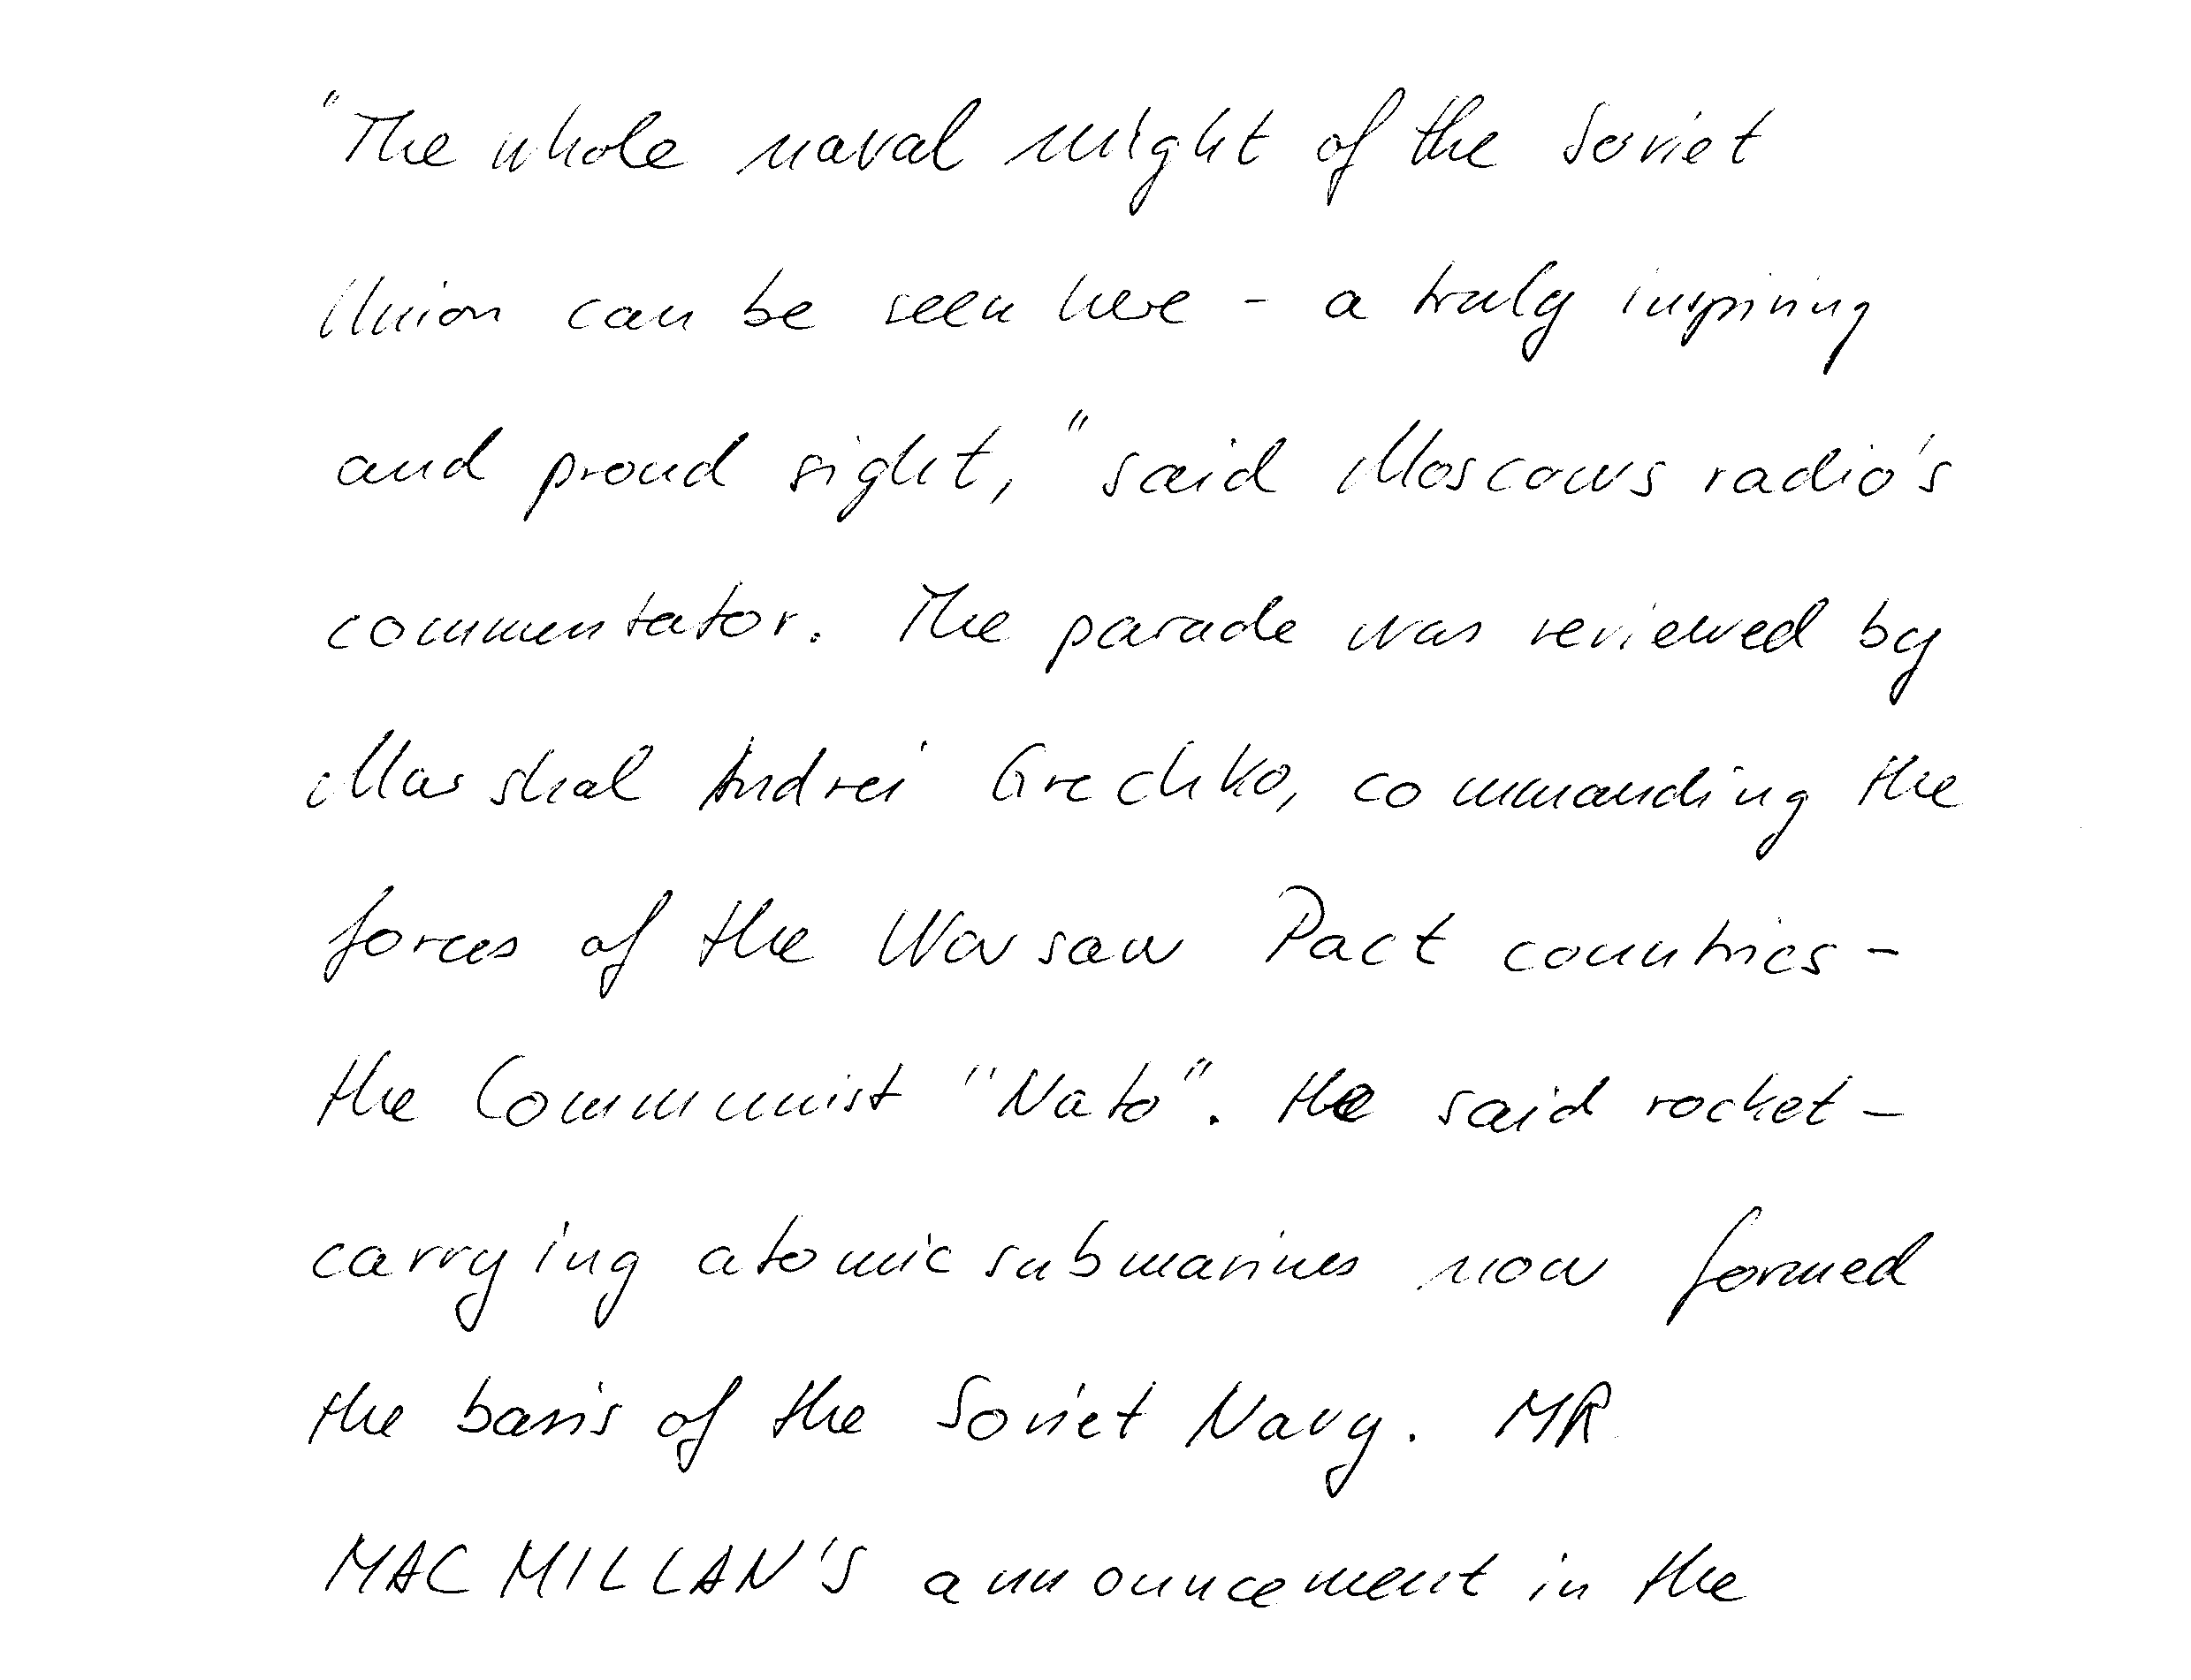 "The whole naval might of the Soviet
Union can be seen here - a truly inspiring
and proud sight," said Moscows radio's
commentator. The parade was reviewed by
Marshal Andrei Grechko, commanding the
forces of the Warsaw Pact countries -
the Communist "Nato". He said rocket -
carrying atomic submarines now formed
the basis of the Soviet Navy. MR
MACMILLAN'S announcement in the